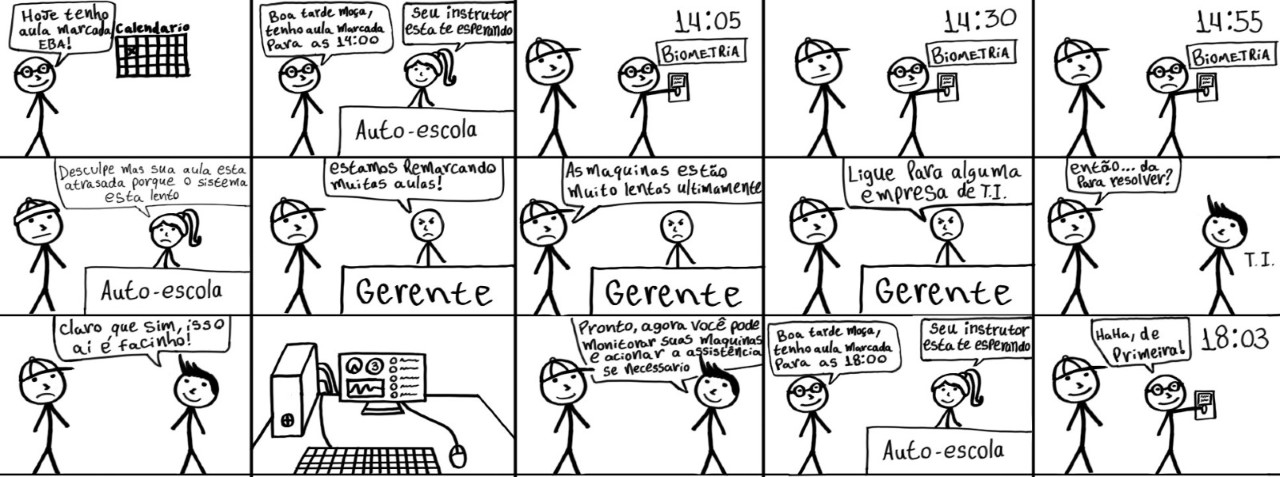 Hoje tenho
aula marcada
EBA!
Calendario
Boa tarde Moça,
tenho aula Marcada
Para as 14:00
Seu instrutor
esta te esperando
Auto-escola
14:05
BIOMETRIA
14:30
BIOMETRIA
14:55
BIOMETRIA
Desculpe mas sua aula esta
atrasada porque o sistema
esta lento
Auto-escola
estamos Remarcando
muitas aulas!
Gerente
As maquinas estão
Muito lentas ultimamente
Gerente
Ligue Para alguma
empresa de T.I.
Gerente
então... da
Para resolver?
T.I.
Claro que Sim, isso
ai é facinho!
3
Pronto, agora Você pode
Monitorar suas Maquinas
e acionar a assistência
se necessario
Boa tarde Moça,
tenho aula Marcada
Para as 18:00
Seu instrutor
esta te esperando
Auto-escola
HaHa, de
Primeira!
18:03